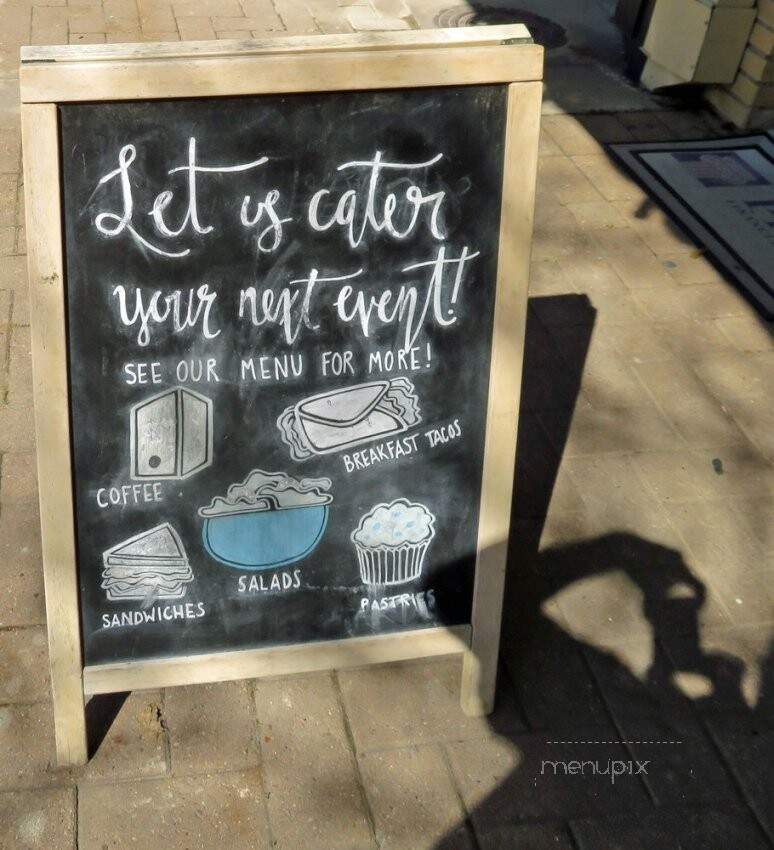 Let us cater
your next event!
SEE OUR MENU FOR MORE!
BREAKFAST TACOS
COFFEE
SALADS
SANDWICHES
PASTRIES
menupix